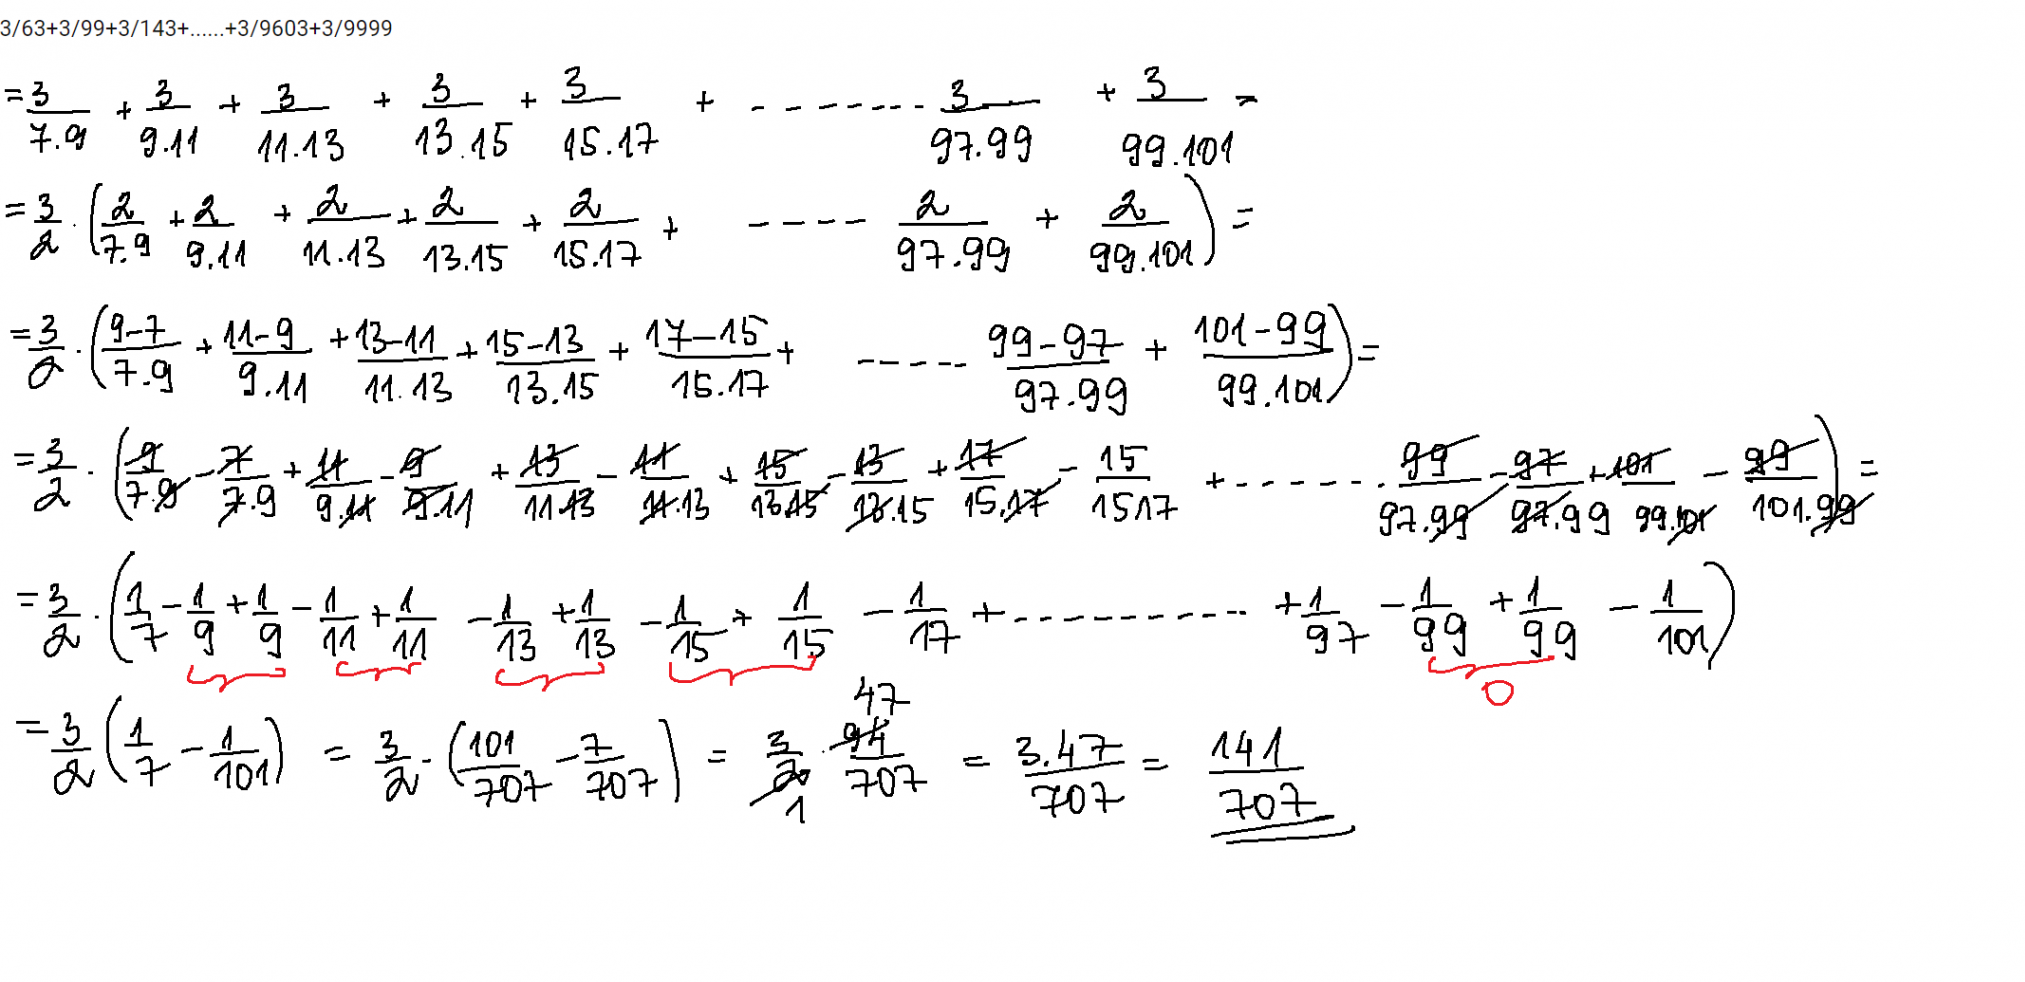 3/63+3/99+3/143+......+3/9603+3/9999
= 3/7.9 + 3/9.11 + 3/11.13 + 3/13.15 + 3/15.17 + -------- 3/97.99 + 3/99.101 =
= 3/2 . (2/7.9 + 2/9.11 + 2/11.13 + 2/13.15 + 2/15.17 + ---- 2/97.99 + 2/99.101) =
= 3/2 . (9-7/7.9 + 11-9/9.11 + 13-11/11.13 + 15-13/13.15 + 17-15/15.17 + ----- 99-97/97.99 + 101-99/99.101) =
= 3/2 . (9/7.9 - 7/7.9 + 11/9.11 - 9/9.11 + 13/11.13 - 11/11.13 + 15/13.15 - 13/13.15 + 17/15.17 - 15/15.17 + ------- 99/97.99 - 97/97.99 + 101/99.101 - 99/101.99) =
= 3/2 . (1/7 - 1/9 + 1/9 - 1/11 + 1/11 - 1/13 + 1/13 - 1/15 + 1/15 - 1/17 + ---------- + 1/97 - 1/99 + 1/99 - 1/101)
0
= 3/2 (1/7 - 1/101) = 3/2 . (101/707 - 7/707) = 3/2 . 94/707 = 3.47/707 = 141/707
47
1